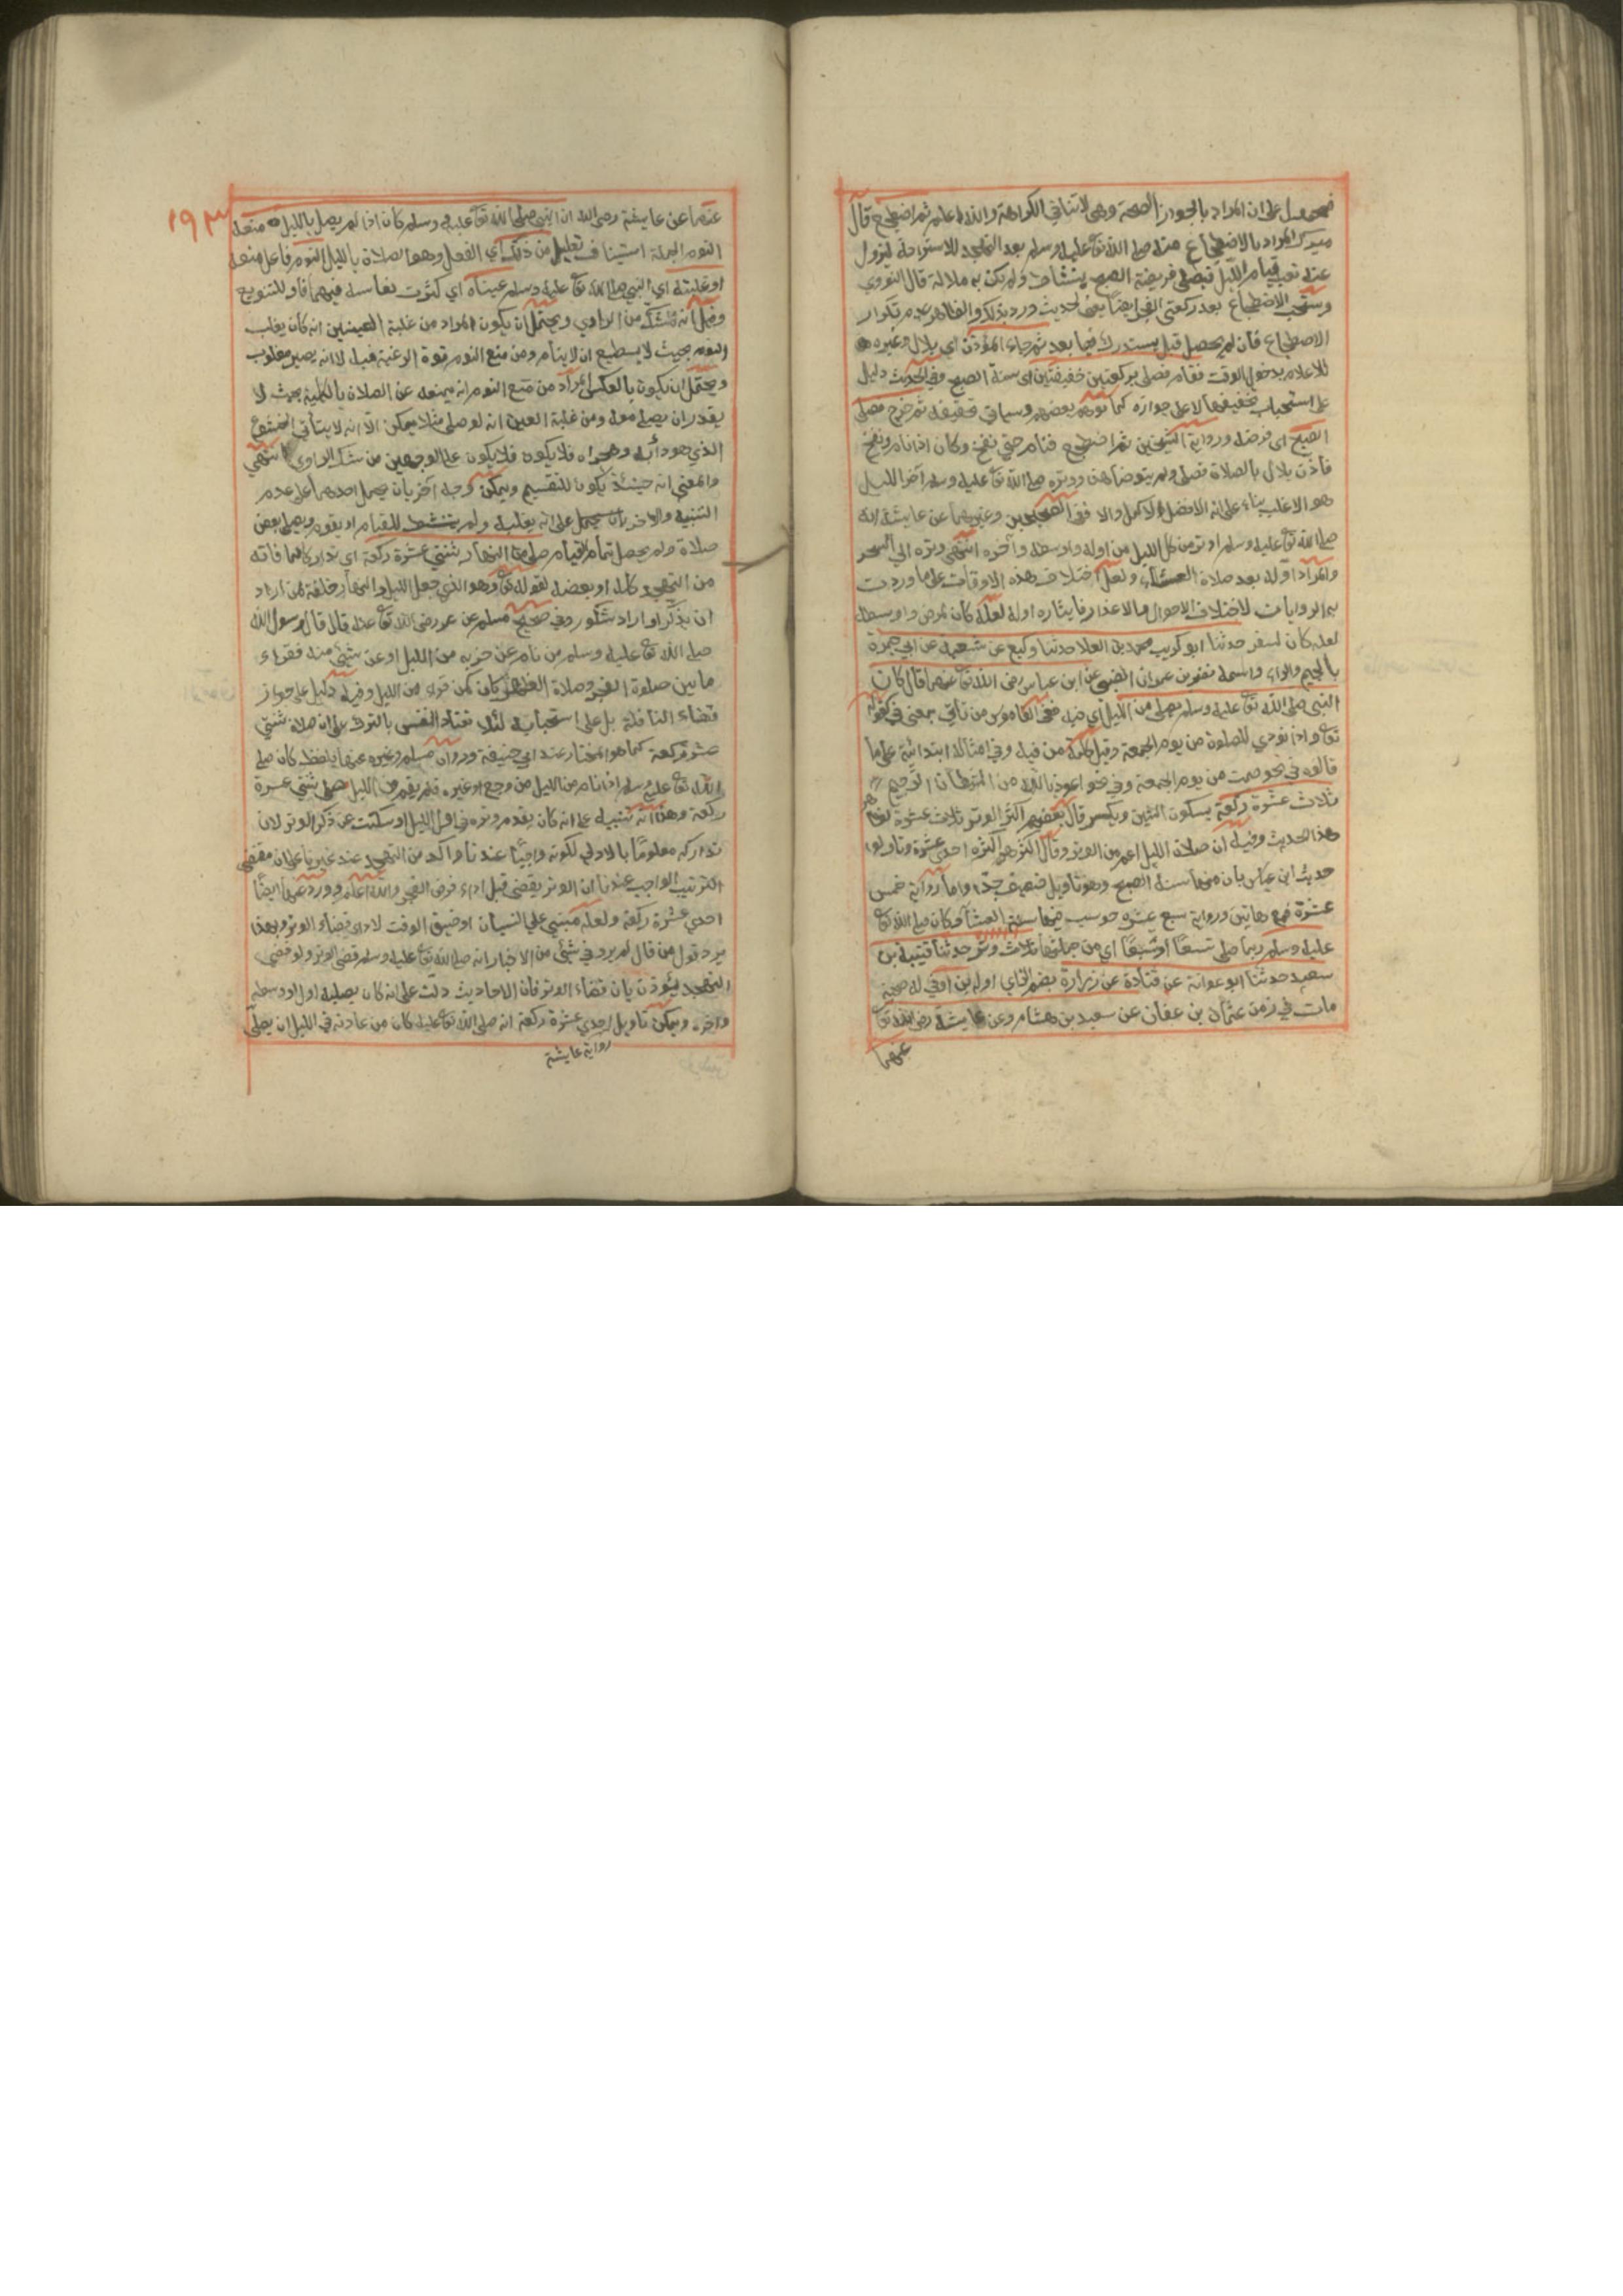 فمحمول على ان المراد بالجواز الصحة وهي لا تنافي الكراهة والله اعلم ثم اضطجع قال
ميرك المراد بالاضطجاع منه صلى الله تع عليه وسلم بعد التهجد للاستراحة ليزول
عنه تعب قيام الليل فيصلي فريضة الصبح بنشاط ولم يكن به ملالة قال النووي
وستحب الاضطجاع بعد ركعتي الفجر ايضا يعني لحديث ورد بذلك والظاهر عدم تكرار
الاضطجاع فان لم يحصل قبل يستدرك فيما بعد ثم جاءه المؤذن اي بلال وغيره
للاعلام بدخول الوقت فقام فصلى ركعتين خفيفتين اي سنة الصبح وفي الحديث دليل
على استحباب تخفيفهما لا على جوازه كما توهم بعضهم وسياتي تحقيقه ثم خرج فصلى
الصبح اى فرضه ورواية الشيخين ثم اضطجع فنام حتى نفخ وكان اذا نام نفخ
فأذن بلال بالصلاة فصلى ولم يتوضأ وهن ووتره صلى الله تع عليه وسلم آخر الليل
هو الاغلب بناء على انه الافضل والاكمل والا ففي الصحيحين وغيرهما عن عايشة انه
صلى الله تع عليه وسلم اوتر من كل الليل من اوله واوسطه وآخره انتهى وتره الى السحر
والمراد اوله بعد صلاة العشاء ولعل اختلاف هذه الاوقات على ما وردت
به الروايات لاختلاف الاحوال والاعذار فايثاره اوله لعله كان لمرض واوسطه
لعله كان لسفر حدثنا ابو كريب محمد بن العلا حدثنا وكيع عن شعبة عن ابي جمرة
بالجيم والراء واسمه نصر بن عمران الضبعي عن ابن عباس رضى الله تع عنهما قال كان
النبي صلى الله تع عليه وسلم يصلي من الليل اي فيه ففي القاموس من تأتي بمعنى في كقوله
تع واذا نودي للصلوة من يوم الجمعة وقيل كلمة من فيه وفي امثاله ابتدائية على ما
قالوه في نحو صمت من يوم الجمعة وفي نحو اعوذ بالله من الشيطان الرجيم
ثلاث عشرة ركعة بسكون الشين ويكسر قال بعضهم اكثر الوتر ثلاث عشرة لظاهر
هذا الحديث وفيه ان صلاة الليل اعم من الوتر وقال اكثرهم اكثره احدى عشرة وتاولوا
حديث ابن عباس بان منها سنة الصبح وهو تاويل ضعيف جدا واما رواية خمس
عشرة فمع هاتين ورواية سبع عشره حوسب فيها سنة العشا وكان صلى الله تع
عليه وسلم ربما صلى تسعا او سبعا اي من جملتها ثلاث وتر حدثنا قتيبة بن
سعيد حدثنا ابو عوانة عن قتادة عن زرارة بضم الزاي اوله بن اوفى له صحبة
مات في زمن عثمان بن عفان عن سعيد بن هشام وعن عايشة رضى الله تع
عنهما
١٩٣
عنها عن عايشة رضي الله ان النبي صلى الله تع عليه وسلم كان اذا لم يصل بالليل منعه
النوم الجملة استيناف تعليل من ذلك اي الفعل وهو الصلاة بالليل النوم فاعل منعه
او غلبته اي النبي صلى الله تع عليه وسلم عيناه اي كثرت نعاسه فيهما فاو للتنويع
وقيل انه للشك من الراوي ويحتمل ان يكون المراد من غلبة العينين انه كان يغلب
النوم بحيث لا يستطيع ان لا ينام ومن منع النوم قوة الرغبة فيه لا انه يصير مغلوب
ويحتمل ان يكون بالعكس اي اراد من منع النوم انه يمنعه عن الصلاة بالكلية بحيث لا
يقدر ان يصلي معه ومن غلبة العين انه لو صلى مثلا يمكن الا انه لا يتأتي الخشوع
الذي هو دأبه وهجيراه فلا يكون فلا يكون على الوجهين من شك الراوي انتهى
والمعنى انه حينئذ يكون للتقسيم ويمكن وجه آخر بان يحمل احدهما على عدم
التنبيه والآخر بان يحمل على انه يغلبه ولم يتنشط للقيام او يقوم ويصلي بعض
صلاة ولم يحصل تمام القيام صلى من النهار ثنتي عشرة ركعة اي تداركا لما فاته
من التهجد كله او بعضه لقوله تع وهو الذي جعل الليل والنهار خلفة لمن اراد
ان يذكر او اراد شكورا وفي صحيح مسلم عن عمر رضى الله تع عنه قال قال رسول الله
صلى الله تع عليه وسلم من نام عن حزبه من الليل او عن شيئ منه فقراه
ما بين صلوة الفجر وصلاة الظهر كان كمن قراه من الليل وفيه دليل على جواز
قضاء النافلة بل على استحبابه لئلا تعتاد النفس بالترك على ان صلاة ثنتي
عشرة ركعة كما هو المختار عند ابي حنيفة وروى مسلم وغيره عنها بلفظ كان صلى
الله تع عليه وسلم اذا نام من الليل من وجع او غيره فلم يقم من الليل صلى ثنتي عشرة
ركعة وهذا انه تنبيه على انه كان يقدم وتره في اول الليل او سكتت عن ذكر الوتر لان
تداركه معلوما بالاولى لكونه واجبا عندنا واكد من التهجد عند غيرنا على ان مقتضى
الترتيب الواجب عندنا ان الوتر يقضى قبل اداء فرض الفجر والله اعلم وورد عنها ايضا
احدى عشرة ركعة ولعله مبني على النسيان او ضيق الوقت لاداء قضاء الوتر وبهذا
يرد قول من قال لم يرو في شيئ من الاخبار انه صلى الله تع عليه وسلم قضى الوتر ولو قضى
التهجد يؤذن بان قضاء الوتر فان الاحاديث دلت على انه كان يصليه اول او وسطه
واخره ويمكن تاويل احدى عشرة ركعة انه صلى الله تع عليه كان من عادته في الليل ان يصلي
رواية عايشة